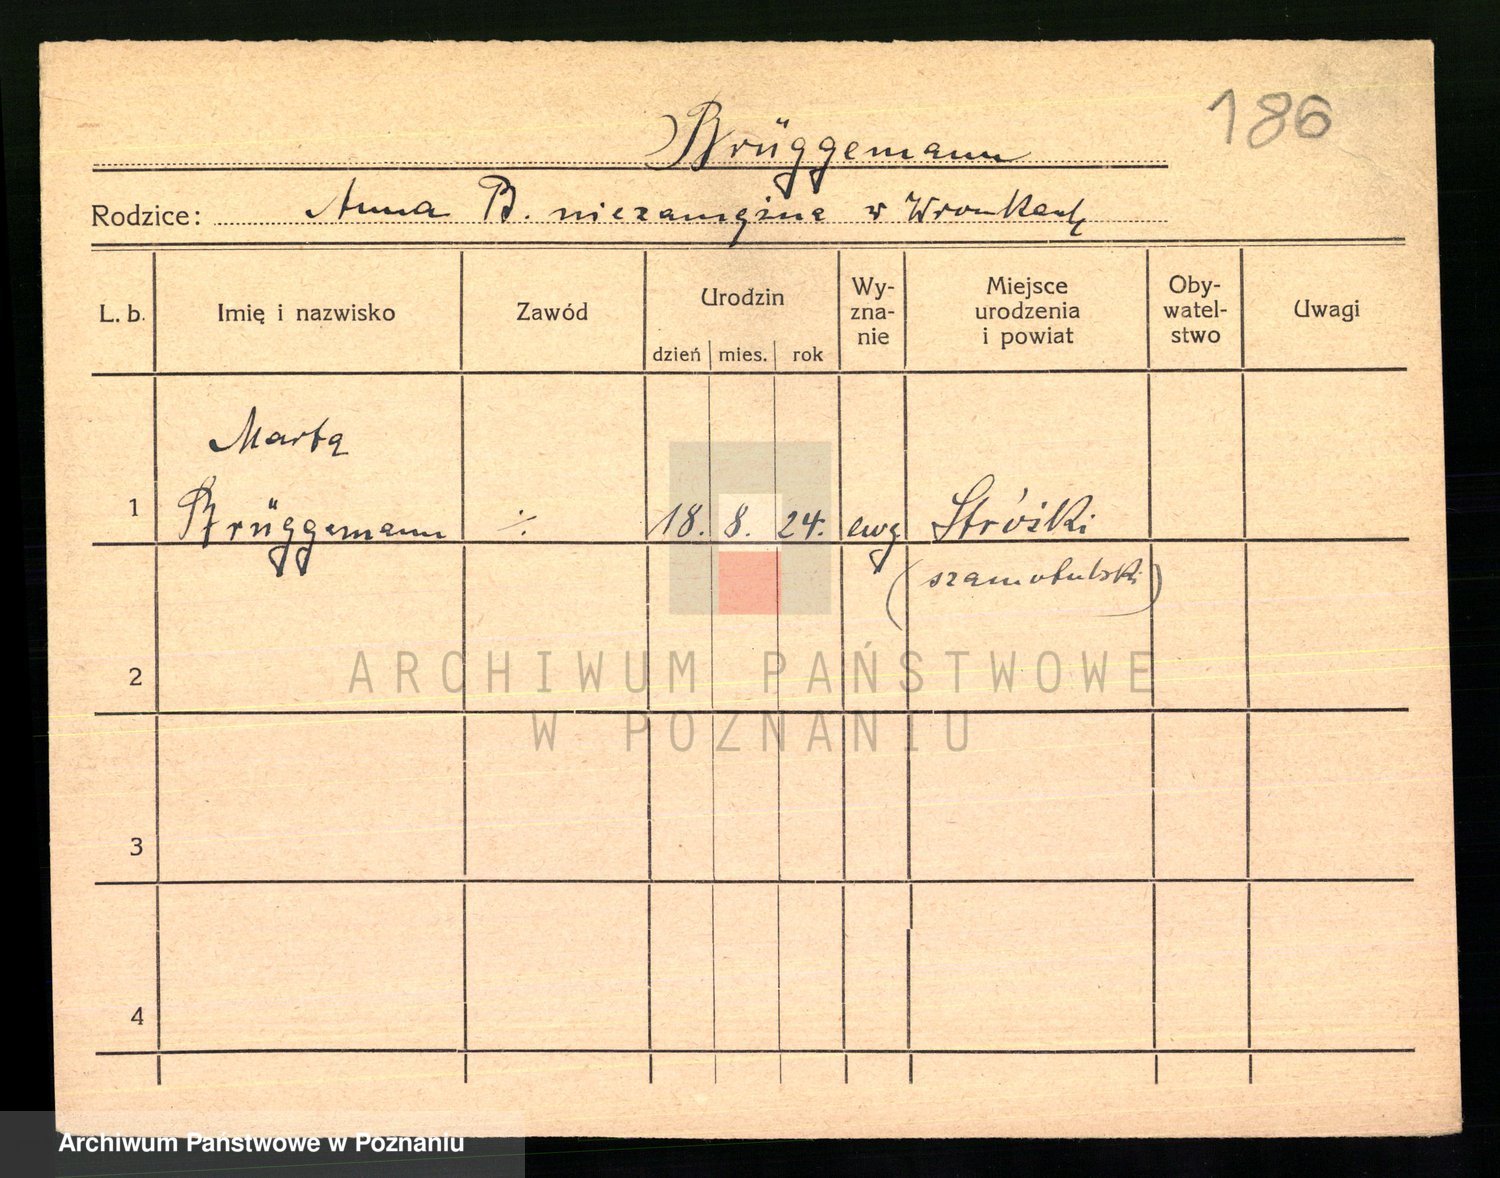 186
Brüggemann
Rodzice: Anna B. niezamężna w Wronkach
L. b.
Imię i nazwisko
Zawód
Urodzin
dzień mies. rok
Wy-
zna-
nie
Miejsce
urodzenia
i powiat
Oby-
watel-
stwo
Uwagi
Marta
1 Brüggemann ÷ 18. 8. 24. ewg Stróżki
(szamotulski)
2
3
4
ARCHIWUM PAŃSTWOWE
W POZNANIU
Archiwum Państwowe w Poznaniu